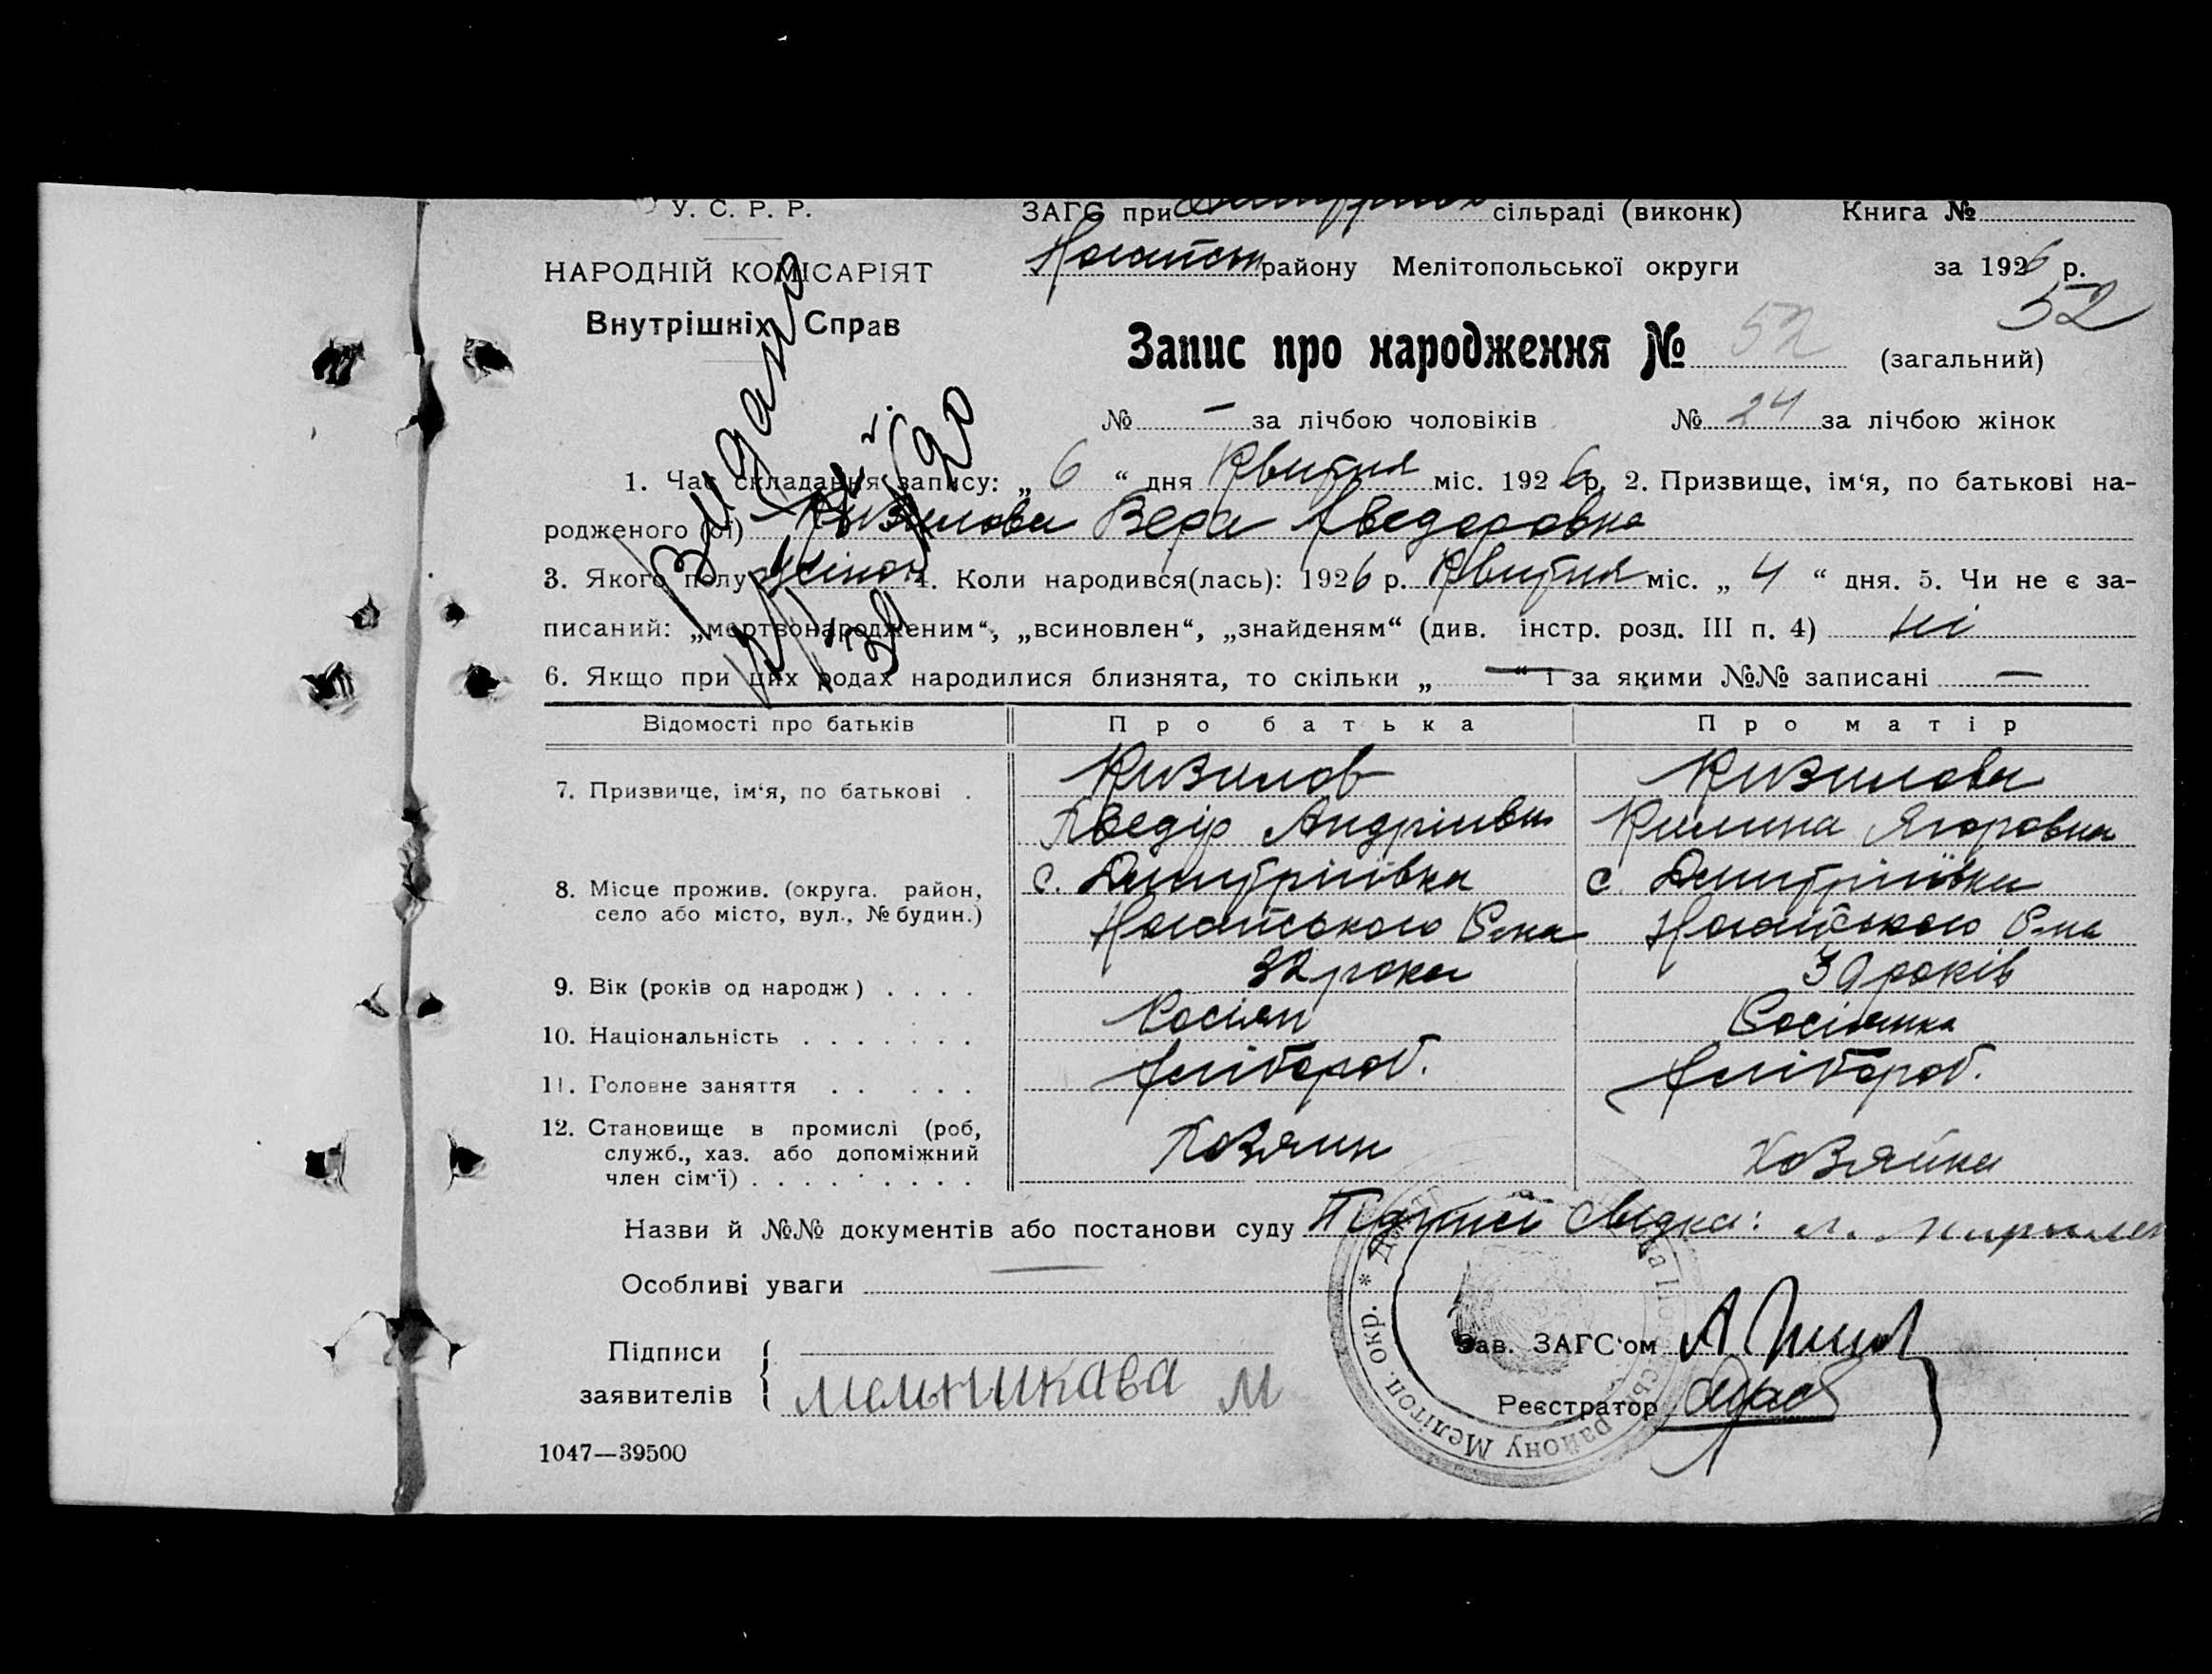 У. С. Р. Р.
НАРОДНІЙ КОМІСАРІЯТ
Внутрішніх Справ
ЗАГС при сільраді (виконк) Книга №
Ногайськ району Мелітопольської округи за 1926 р.
52
Запис про народження № 52 (загальний)
№ — за лічбою чоловіків № 24 за лічбою жінок
Видано
1. Час складання запису: „ 6 “ дня Квитня міс. 1926 р. 2. Призвище, ім‘я, по батькові на-
родженого (ої) Кизилова Вера Хведоровна
3. Якого полу жіноч 4. Коли народився(лась): 1926 р. Квитня міс. „ 4 “ дня. 5. Чи не є за-
писаний: „мертвонародженим“, „всиновлен“, „знайденям“ (див. інстр. розд. III п. 4) ні
6. Якщо при цих родах народилися близнята, то скільки „ — “ і за якими №№ записані —
Відомості про батьків Про батька Про матір
7. Призвище, ім‘я, по батькові . Кизилов Кизилова
Хведір Андріивич Килина Ягоровна
8. Місце прожив. (округа. район, с. Дмитріивка с Дмитріивка
село або місто, вул., № будин.) Ногайського Р-на Ногайського Р-на
9. Вік (років од народж) . . . . 32 рока 30 років
10. Національність . . . . . . . Росіян Росіянка
11. Головне заняття . . . . . Хлібороб. Хлібороб.
12. Становище в промислі (роб,
служб., хаз. або допоміжний Хозяин Хозяйка
член сім‘ї) . . . . . . . . .
Назви й №№ документів або постанови суду Підписі свідка:
Особливі уваги
Підписи
заявителів мельникава М
Зав. ЗАГС‘ом
Реєстратор
району Мелітоп. окр. *
1047—39500